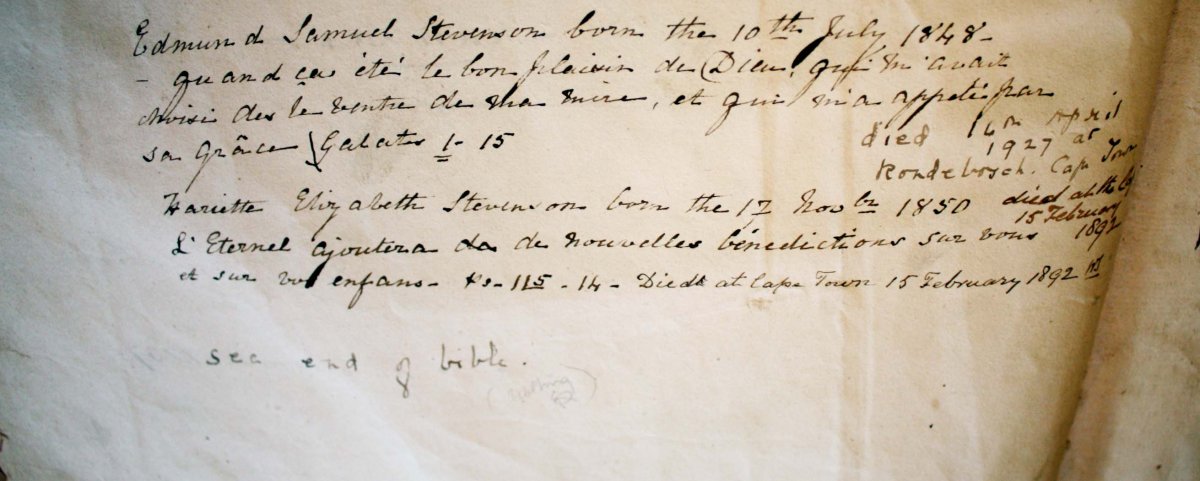 Edmund Samuel Stevenson born the 10th July 1848-
- quand ça été le bon plaisir de Dieu, qui m'avait
choisi des le ventre de ma mere, et qui m'a appelé par
sa Grâce (Galates 1- 15
died 14th April
1927 at
Rondebosch. Cape Town
Hariette Elizabeth Stevenson born the 17 Novbr 1850 died at the
15 February
L'Eternel ajoutera de nouvelles bénedictions sur vous 1892
et sur vos enfans- Ps- 115 - 14 - Died at Cape Town 15 February 1892
see end of bible.
(Nothing